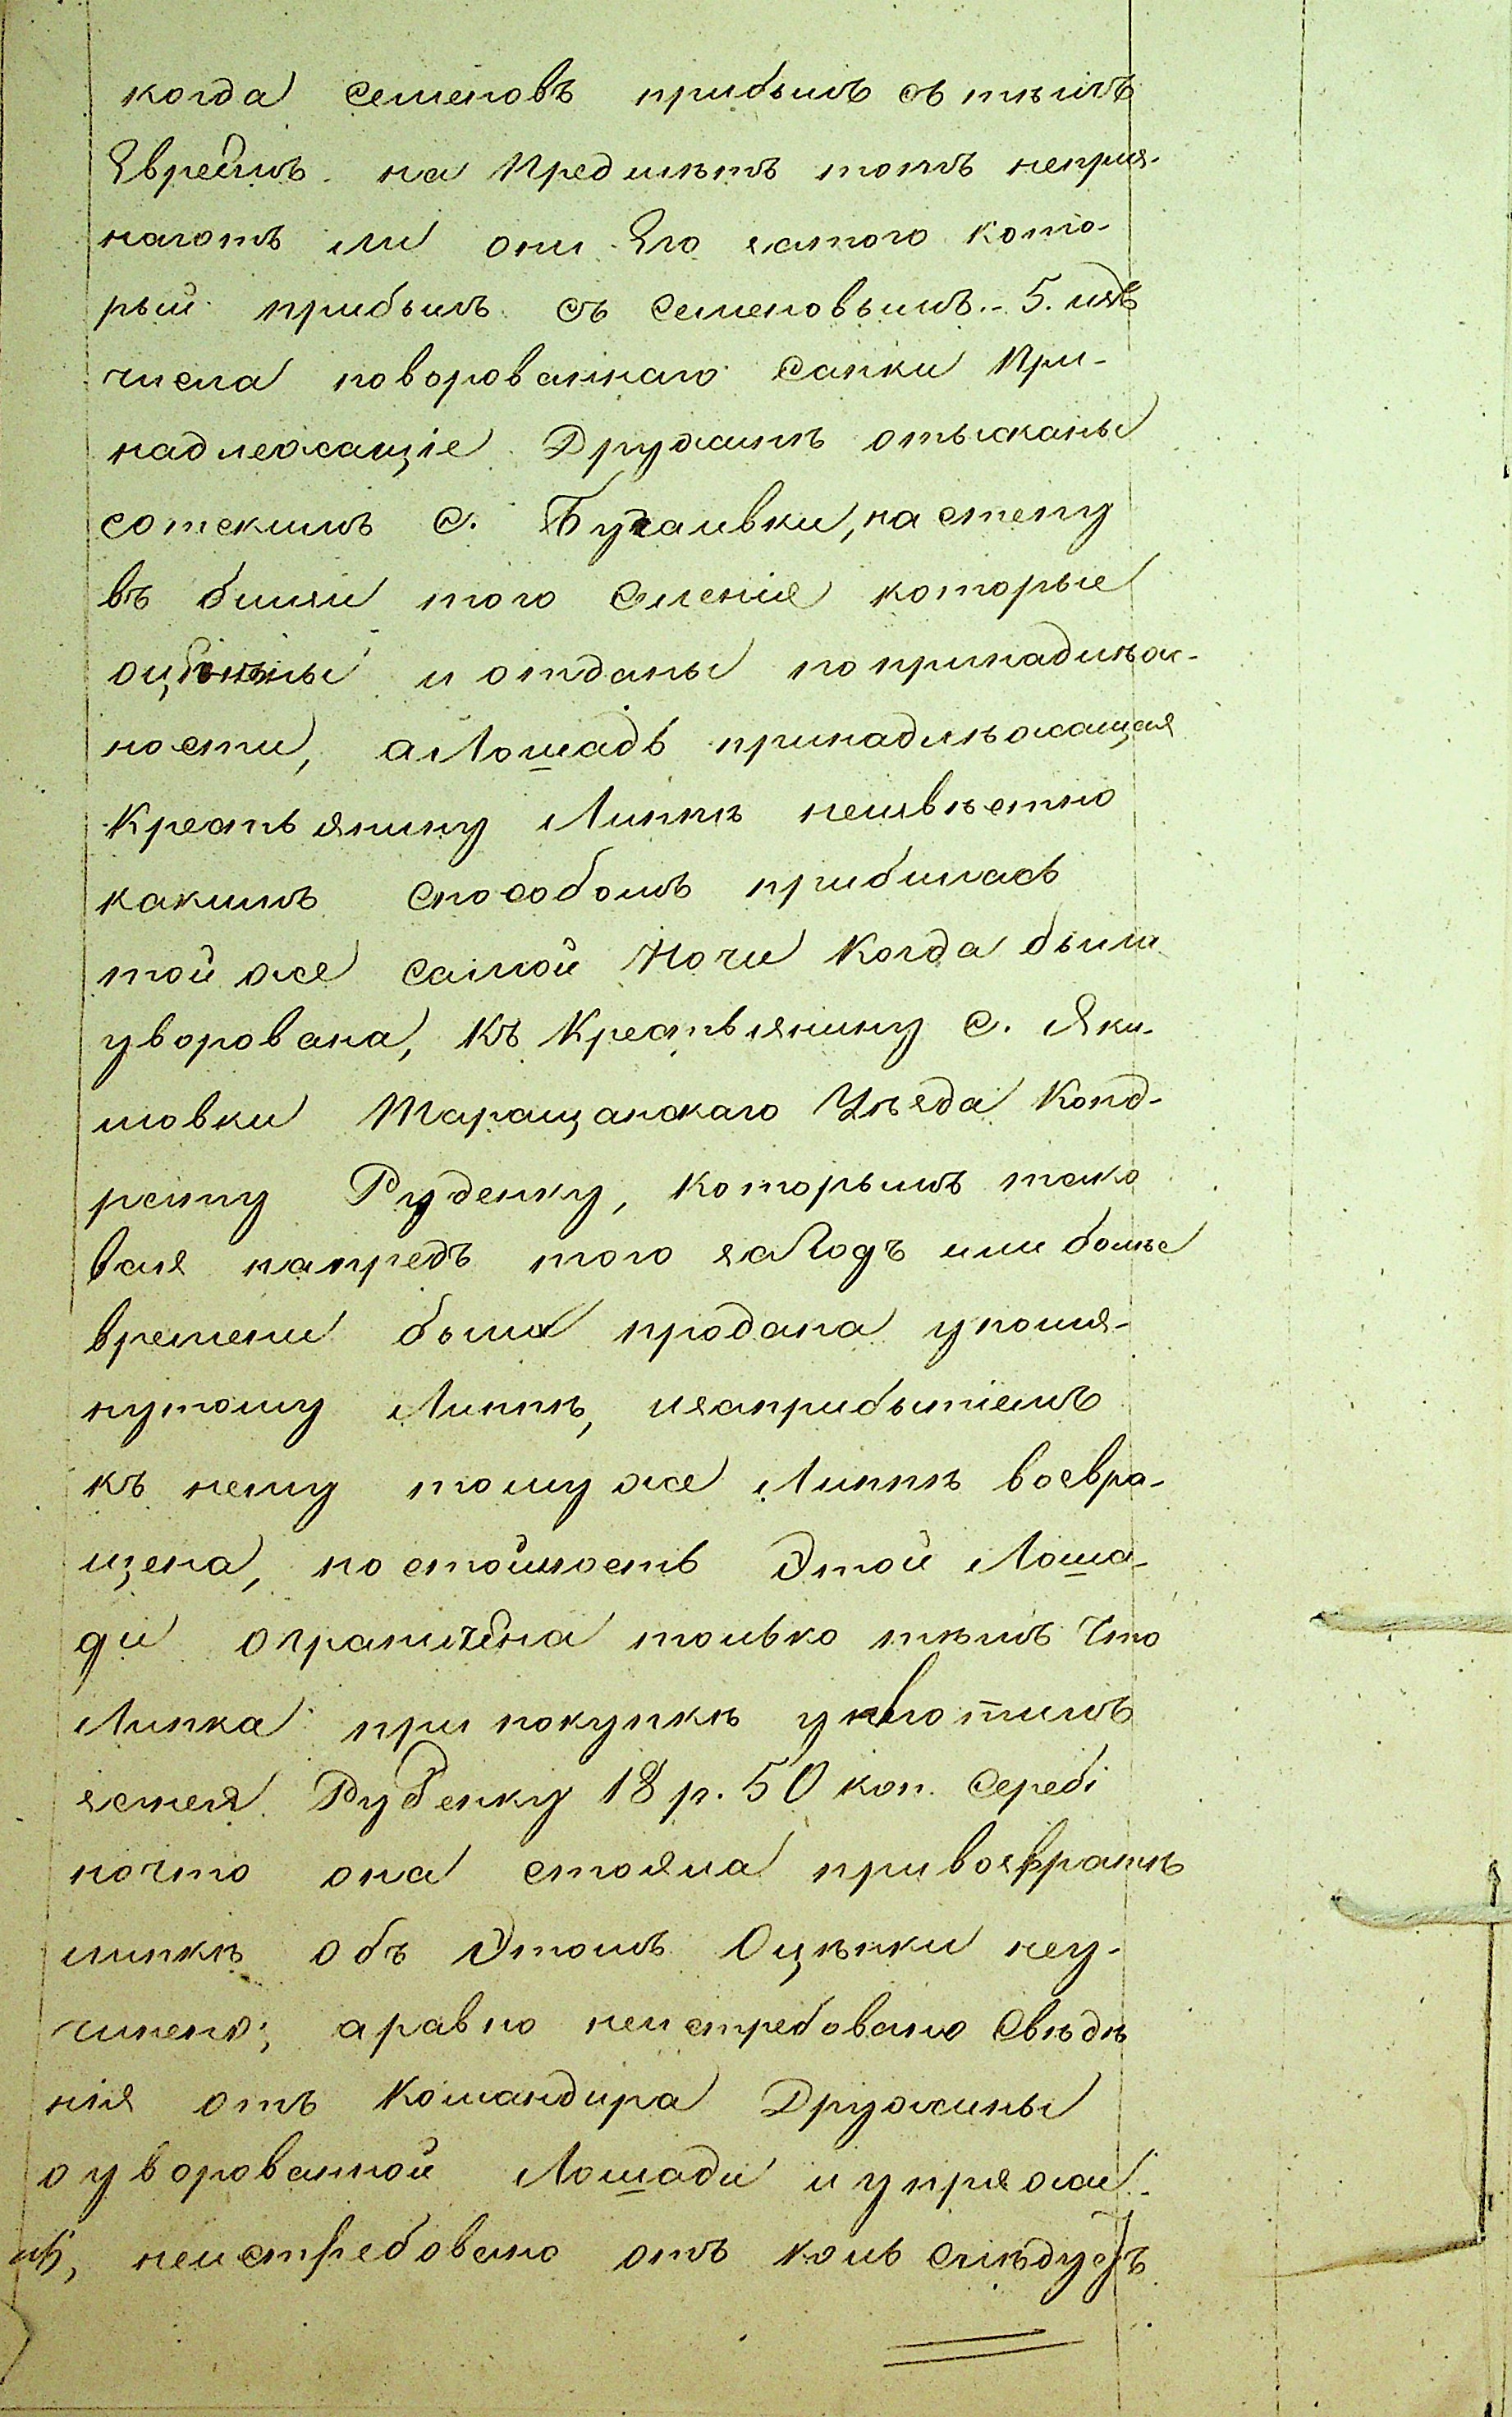 когда Семеновъ прибылъ съ тѣмъ
Евреемъ на Предметъ тотъ неприз-
наютъ ли они Его затого кото-
рый прибылъ съ Семеновымъ. - 5. изъ
числа поворованнаго Санки При-
надлежащіе Дружинѣ отысканы
сотскимъ с. Бугаивки, на степу
въ близи того Селенія которые
оценены и отданы попринадлѣж-
ности, аЛошадь принадлѣжащая
Крестьянину Липкѣ неизвѣстно
какимъ способомъ прибилась
той же самой Ночи Когда была
уворована, Къ Крестьянину с. Яки-
мовки Таращанскаго Уѣзда Конд-
рату Руденку, Которымъ тако
вая напредъ того заГодъ или болѣе
времени была продана упомя-
нутому Липкѣ, изаприбытіемъ
къ нему томуже Липкѣ возвра-
щена, но стоймость Этой Лоша-
ди ограничена только тѣмъ Что
Липка при покупкѣ уплотилъ
занея Руденку 18 р. 50 коп. Сереб
ночто она стояла привозвратѣ
липкѣ объ Этомъ Оцѣнки неу-
чинено; аравно неистребовано Свѣдѣ
нія отъ Командира Дружины
оуворованной Лошади и упряжи
5, неистребовано отъ кого слѣдуетъ